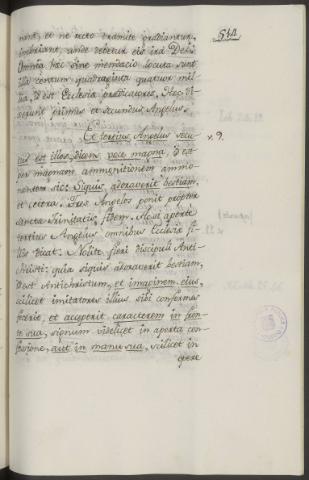 514
nant, et ne recto tramite gradiantur,
inebriant, unde debetur eis ira Dei.
Omnia hec sine mendacio locuta sunt
illa centum quadraginta quatuor mil-
lia, id est Ecclesia predicatores. Hec di-
xerunt primus et secundus Angelus.
Et tertius Angelus secu- v. 9.
tus est illos, dicens voce magna, id est
per magnam ammonitionem ammo-
nendo sic: Siquis adoraverit bestiam,
et cetera. Tres Angelos ponit propter
sancte Trinitatis fidem. Mox aperte
tertius Angelus omnibus Ecclesie fi-
liis dicat: Nolite fieri discipuli Anti-
christi: quia siquis adoraverit bestiam,
id est Antichristum, et imaginem eius,
scilicet imitatores illius sibi conformes
fecerit, et acceperit caracterem in fron-
te sua, signum videlicet in aperta con-
fesione, aut in manu sua, scilicet in
opere